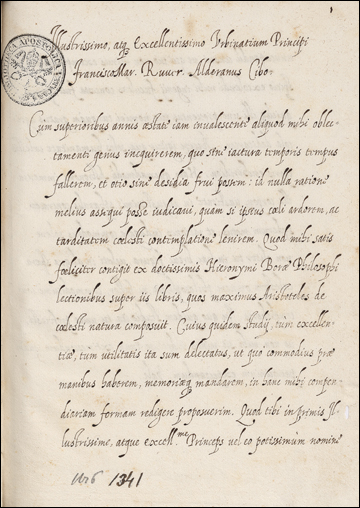 1
Illustrissimo, atq; Excellentissimo Vrbinatium Principi
Francisco Mar. Ruuer. Alderanus Cibo.
BIBLIOTHECA APOSTOLICA VATICANA
Cùm superioribus annis æstate iam inualescente aliquod mihi oblec-
tamenti genus inquirerem, quo sine iactura temporis tempus
fallerem, et ocio sine desidia frui possem: id nulla ratione
melius assequi posse iudicaui, quam si ipsius cœli ardorem, ac
tarditatem cœlesti contemplatione lenirem. Quod mihi satis
fœliciter contigit ex doctissimis Hieronymi Boræ Philosophi
lectionibus super iis libris, quos maximus Aristoteles de
cœlesti natura composuit. Cuius quidem studij, tùm excellen-
tiæ, tum utilitatis ita sum delectatus, ut quo commodius præ
manibus haberem, memoriæq; mandarem, in hanc mihi compen-
diariam formam redigere proposuerim. Quod tibi in primis Il-
lustrissime, atque excell.me Princeps vel eo potissimùm nomine
Urb 1341